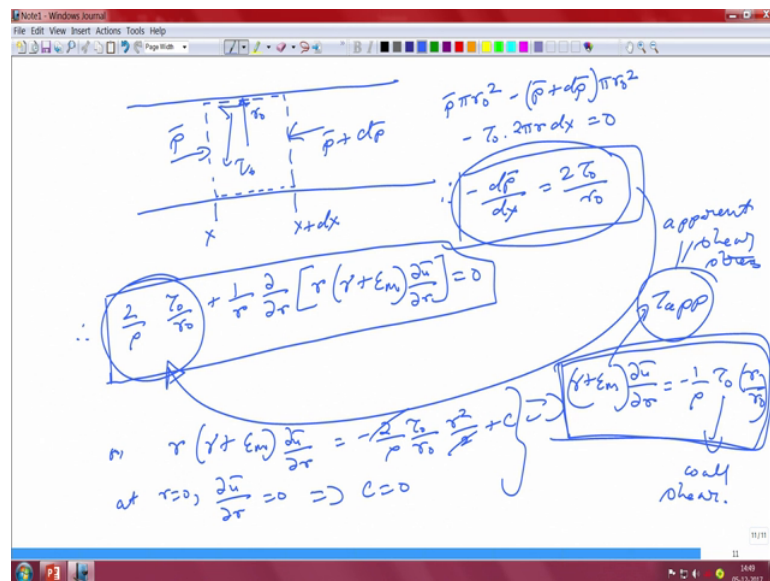 Note1 - Windows Journal
File Edit View Insert Actions Tools Help
Page Width
p̄
r₀
τ₀
p̄ + dp̄
x
x+dx
p̄ πr₀² - (p̄ + dp̄) πr₀²
- τ₀ . 2πr dx = 0
∴ - dp̄/dx = 2τ₀/r₀
apparent
shear
stress
τapp
∴ 2/ρ τ₀/r₀ + 1/r ∂/∂r [r (γ + εm) ∂ū/∂r] = 0
(γ + εm) ∂ū/∂r = - 1/ρ τ₀ (r/r₀)
wall
shear.
or, r (γ + εm) ∂ū/∂r = - 2/ρ τ₀/r₀ r²/2 + C } =>
at r=0, ∂ū/∂r = 0 => C = 0
11/11
11
14:49
05-12-2017